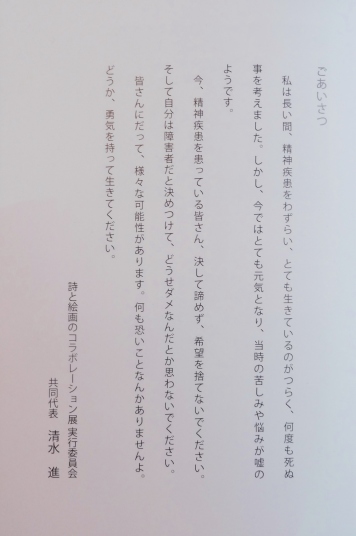 ごあいさつ
私は長い間、精神疾患をわずらい、とても生きているのがつらく、何度も死ぬ
事を考えました。しかし、今ではとても元気となり、当時の苦しみや悩みが嘘の
ようです。
今、精神疾患を患っている皆さん、決して諦めず、希望を捨てないでください。
そして自分は障害者だと決めつけて、どうせダメなんだとか思わないでください。
皆さんにだって、様々な可能性があります。何も恐いことなんかありませんよ。
どうか、勇気を持って生きてください。
詩と絵画のコラボレーション展 実行委員会
共同代表 清水 進